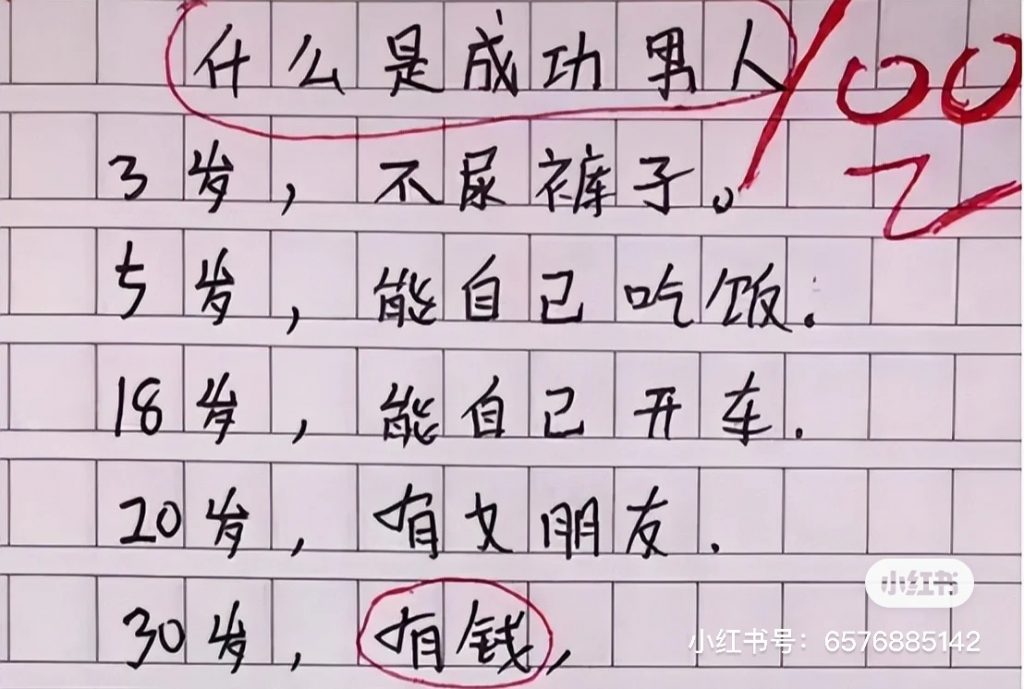 什么是成功男人
100
3岁，不尿裤子。
5岁，能自己吃饭.
18岁，能自己开车.
20岁，有女朋友.
30岁，有钱，
小红书
小红书号：6576885142